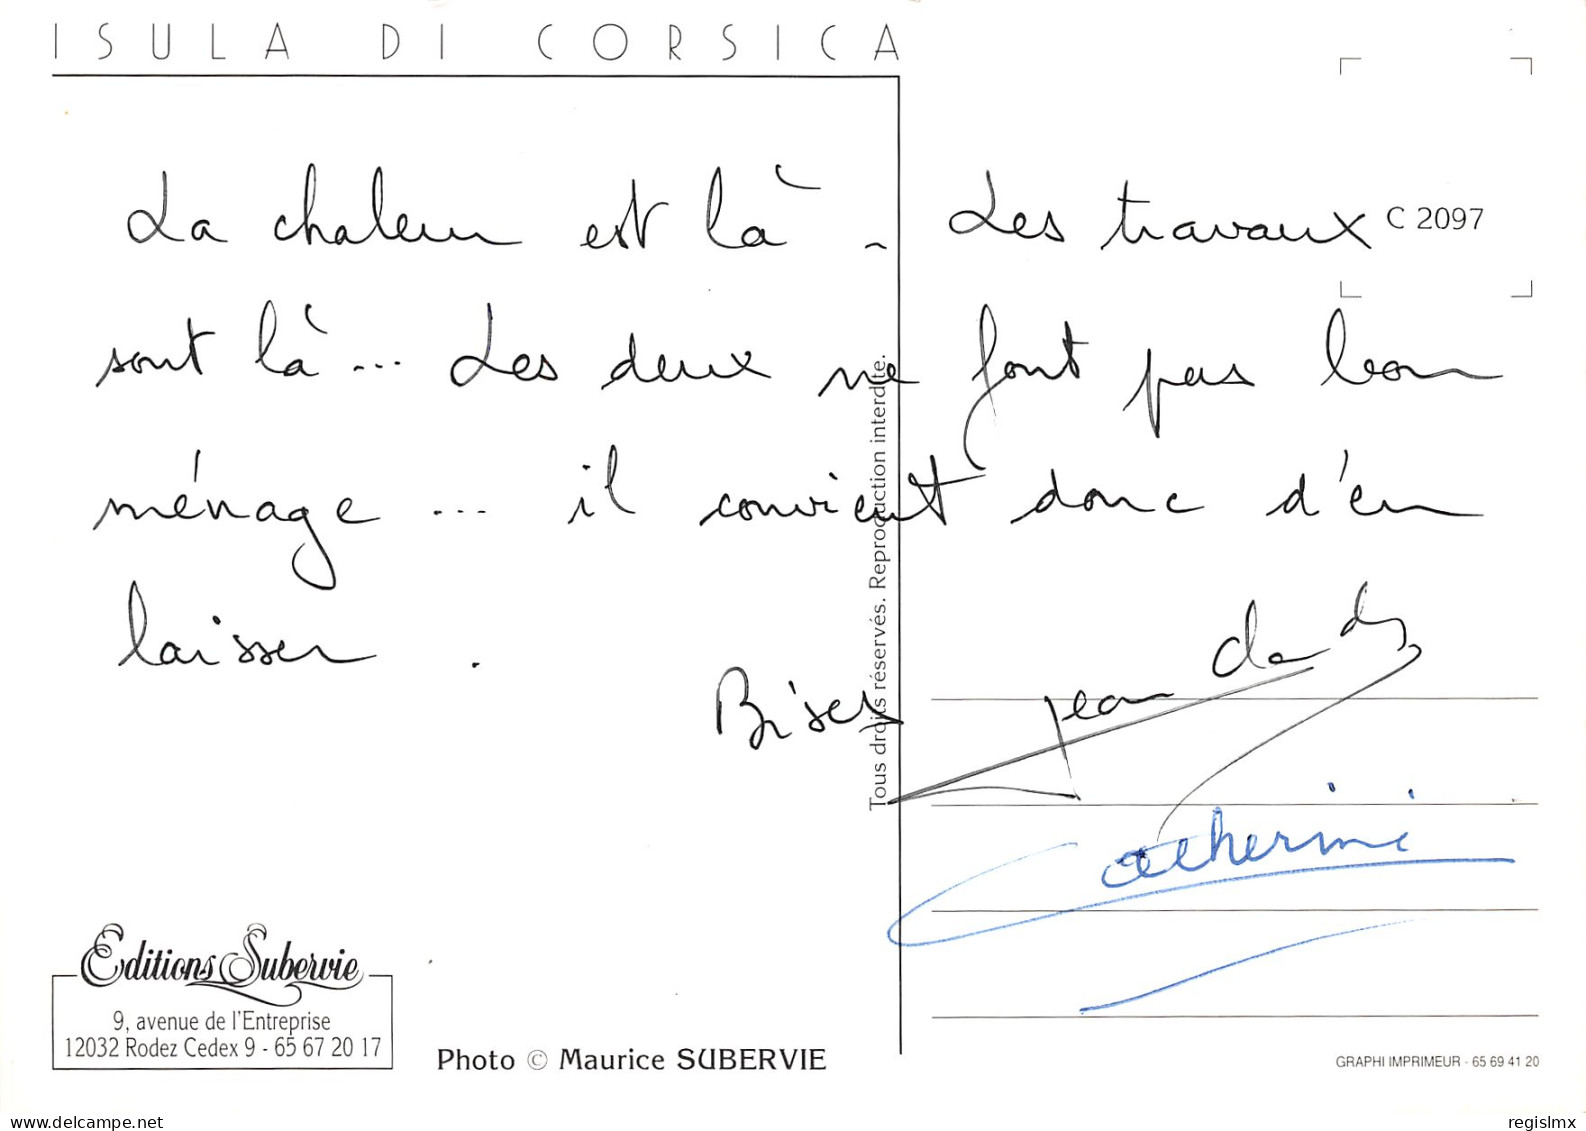 ISULA DI CORSICA
La chaleur est là - Les travaux
C 2097
sont là ... Les deux ne font pas bon
ménage ... il convient donc d'en
laisser .
Bises
jean claude
Catherine
Tous droits réservés. Reproduction interdite.
Editions Subervie
9, avenue de l'Entreprise
12032 Rodez Cedex 9 - 65 67 20 17
Photo © Maurice SUBERVIE
GRAPHI IMPRIMEUR - 65 69 41 20
regislmx